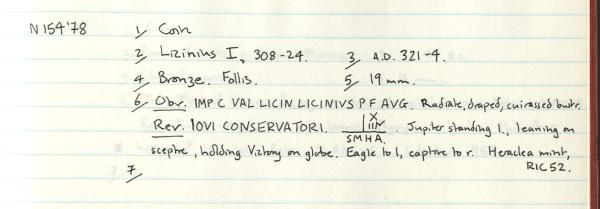 N154'78 1/ Coin
2/ Licinius I, 308-24. 3/ A.D. 321-4.
4/ Bronze. Follis. 5/ 19mm.
6/ Obv. IMP C VAL LICIN LICINIVS P F AVG. Radiate, draped, cuirassed bust r.
Rev. IOVI CONSERVATORI. X IIΓ SMHA. Jupiter standing l., leaning on
sceptre, holding Victory on globe. Eagle to l, captive to r. Heraclea mint,
RIC 52.
7/